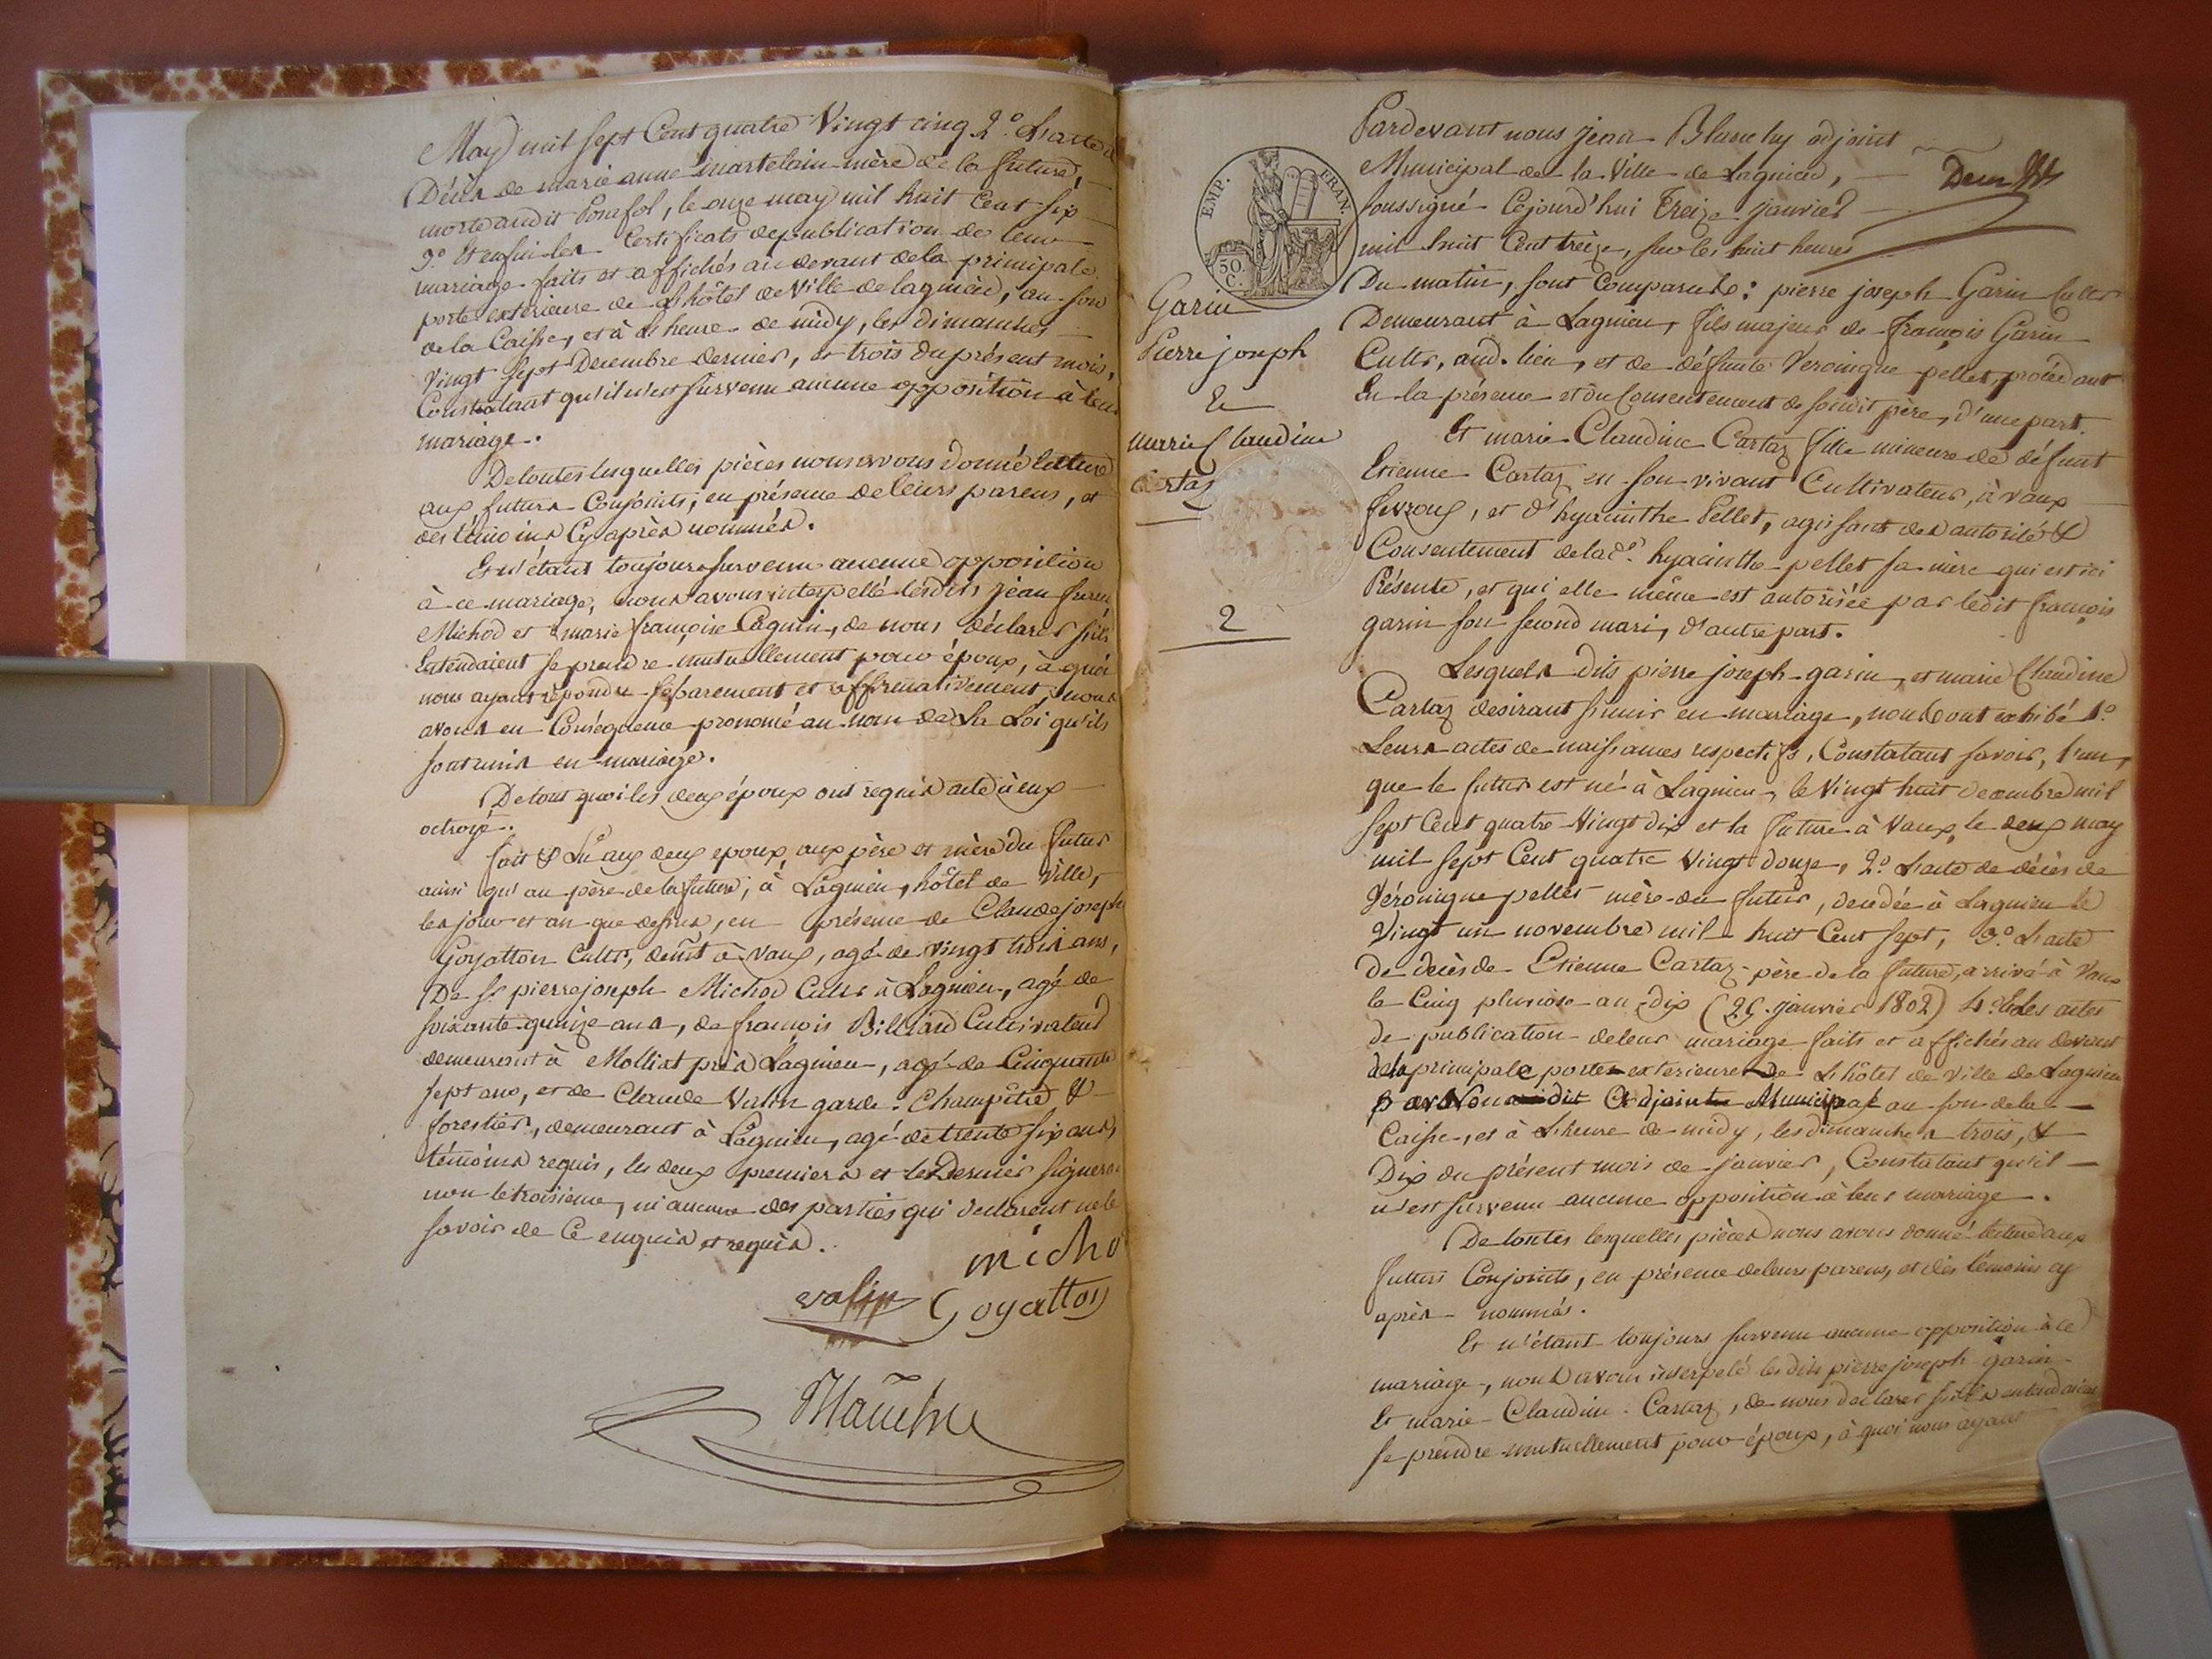 May mil sept Cent quatre Vingt cinq 2.° L'acte de
Décès de marie anne martelain mère de la future,
morte audit Posafol, le onze may mil huit Cent six
3.° Et enfin les Certificats de publication de leur
mariage faits et affichés au devant de la principale
porte extérieure de L'hôtel de Ville de lagnieu, au son
de la Caisse, et à L'heure de midy, les dimanches
Vingt sept Decembre dernier, et trois du présent mois,
Constatant qu'il n'est survenu aucune opposition à leur
mariage.
De toutes lesquelles pièces nous avons donné lecture
aux futurs Conjoints, en présence de leurs parens, et
des témoins Cy après nommés.
Et n'étant toujours survenu aucune opposition
à ce mariage, nous avons interpellé lesdits jean
Michod et marie françoise Caquin, de nous déclarer s'ils
Entendaient se prendre mutuellement pour époux, à quoi
nous ayant répondu separement et affirmativement, nous
avons en Conséquence prononcé au nom de La Loi qu'ils
sont unis en mariage.
De tout quoi les deux époux ont requis acte à eux
octroyé.
fait & Lu aux deux epoux, aux père et mère du futur
ainsi qu'au père de la future, à Lagnieu, hôtel de Ville,
les jour et an que dessus, en présence de Claude joseph
Goyatton Cultr, demt à Vaux, agé de vingt trois ans,
De Sr pierre joseph Michod Cultr à Lagnieu, agé de
soixante quinze ans, de françois Billiard Cultivateur
demeurant à Molliat près Lagnieu, agé de Cinquante
sept ans, et de Claude Valin garde Champêtre &
forestier, demeurant à Lagnieu, agé de trente six ans,
témoins requis, les deux premiers et le Dernier signeront
non le troisieme, ni aucune des parties qui declarent ne le
savoir de Ce enquis et requis.
micho
valin Goyatton
Blanchy
Pardevant nous jean Blanchy adjoint
Municipal de la Ville de Lagnieu, Deux
soussigné Cejourd'hui Treize janvier
mil huit Cent treize, sur les huit heures
Du matin, sont Comparuts: pierre joseph Garin Cultr
Demeurant à Lagnieu, fils majeur de françois Garin
Cultr, aud. lieu, et de défunte Veronique pellet, procédant
En la présence et du Consentement de sondit père, d'une part.
Et marie Claudine Cartaz fille mineure de défunt
Etienne Cartaz en son vivant Cultivateur, à vaux
fevroux, et d'hyacinthe Pellet, agissant des autorité &
Consentement de lad.e hyacinthe pellet sa mère qui est ici
Présente, et qui elle même est autorisée par ledit françois
garin son second mari, d'autre part.
Lesquels dits pierre joseph garin, et marie Claudine
Cartaz desirant s'unir en mariage, nous ont exhibé 1.°
Leurs actes de naissances respectifs, Constatant savoir, l'un,
que le futur est né à Lagnieu, le Vingt huit decembre mil
sept Cent quatre Vingt dix et la future à Vaux, le deux may
mil sept Cent quatre Vingt douze, 2.° L'acte de décès de
Véronique pellet mère du futur, décédée à Lagnieu le
Vingt un novembre mil huit Cent sept, 3.° L'acte
de décès de Etienne Cartaz père de la future, arrivé à Vaux
le Cinq pluviose an dix (25 janvier 1802) 4.° les actes
de publication de leur mariage faits et affichés au devant
de la principale porte exterieure de L'hôtel de Ville de Lagnieu
par Nous dit Adjoint Municipal au son de la
Caisse, et à L'heure de midy, les dimanches trois, &
Dix du présent mois de janvier, Constatant qu'il
n'est survenu aucune opposition à leur mariage.
De toutes lesquelles pièces nous avons donné lecture aux
futurs Conjoints, en présence de leurs parens, et des témoins cy
après nommés.
Et n'étant toujours survenu aucune opposition à ce
mariage, nous avons interpelé lesdits pierre joseph garin
Et marie Claudine Cartaz, de nous declarer s'ils entendaient
se prendre mutuellement pour époux, à quoi nous ayant
EMP. FRAN.
50
C.
Garin
Pierre joseph
Et
marie Claudine
Cartaz
2